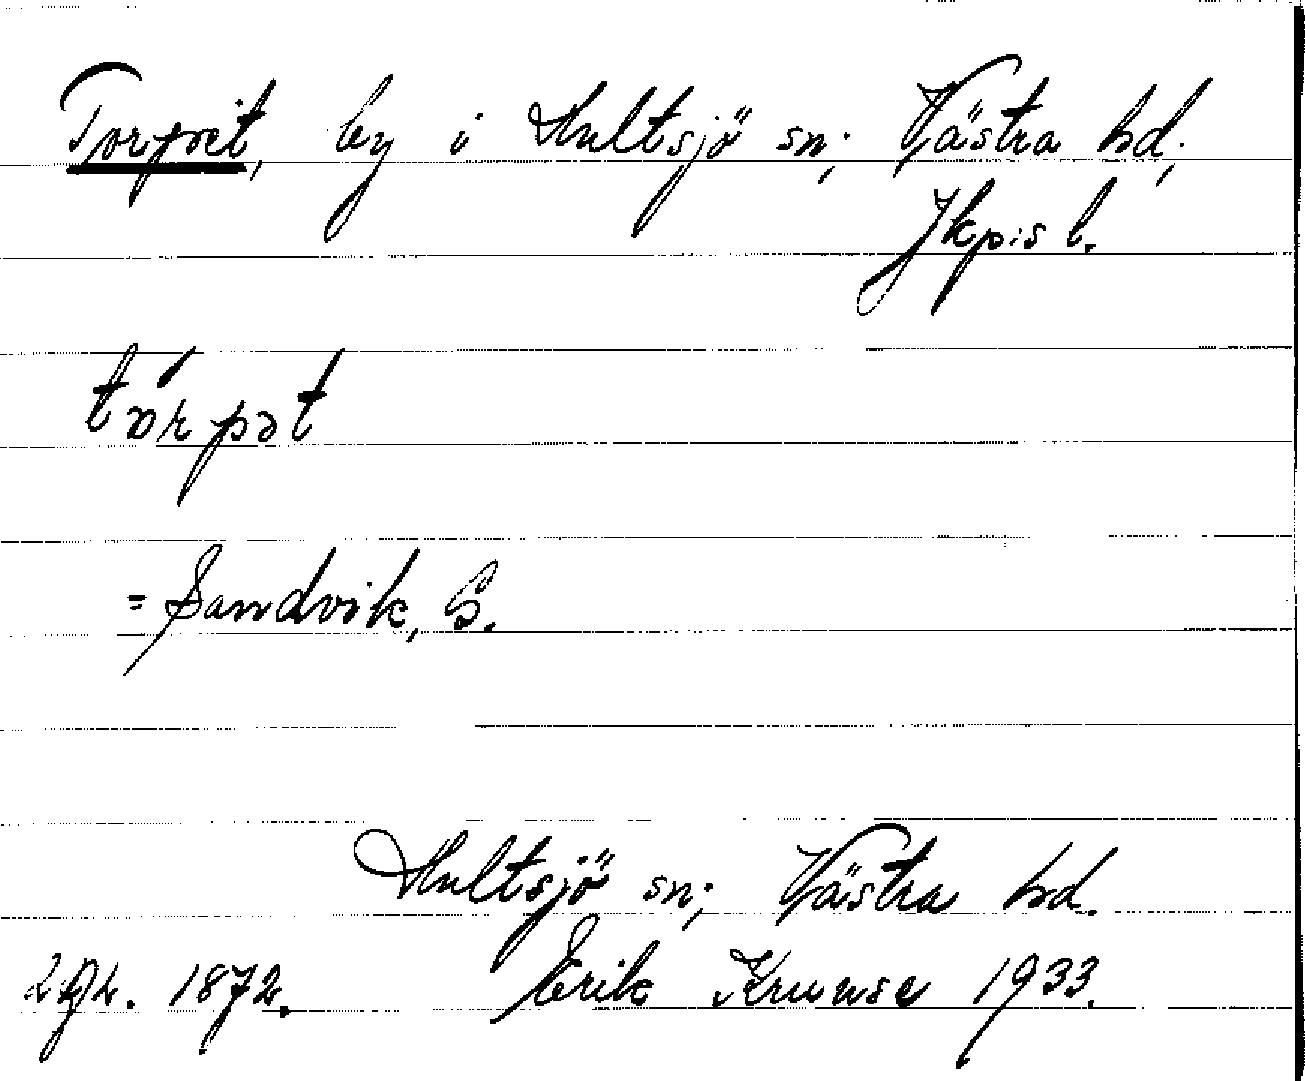 Torpet, by i Hultsjö sn; Västra hd;
Jkpis l.
tórpət
= Sandvik, S.
Hultsjö sn; Västra hd.
1872. Erik Kruuse 1933.